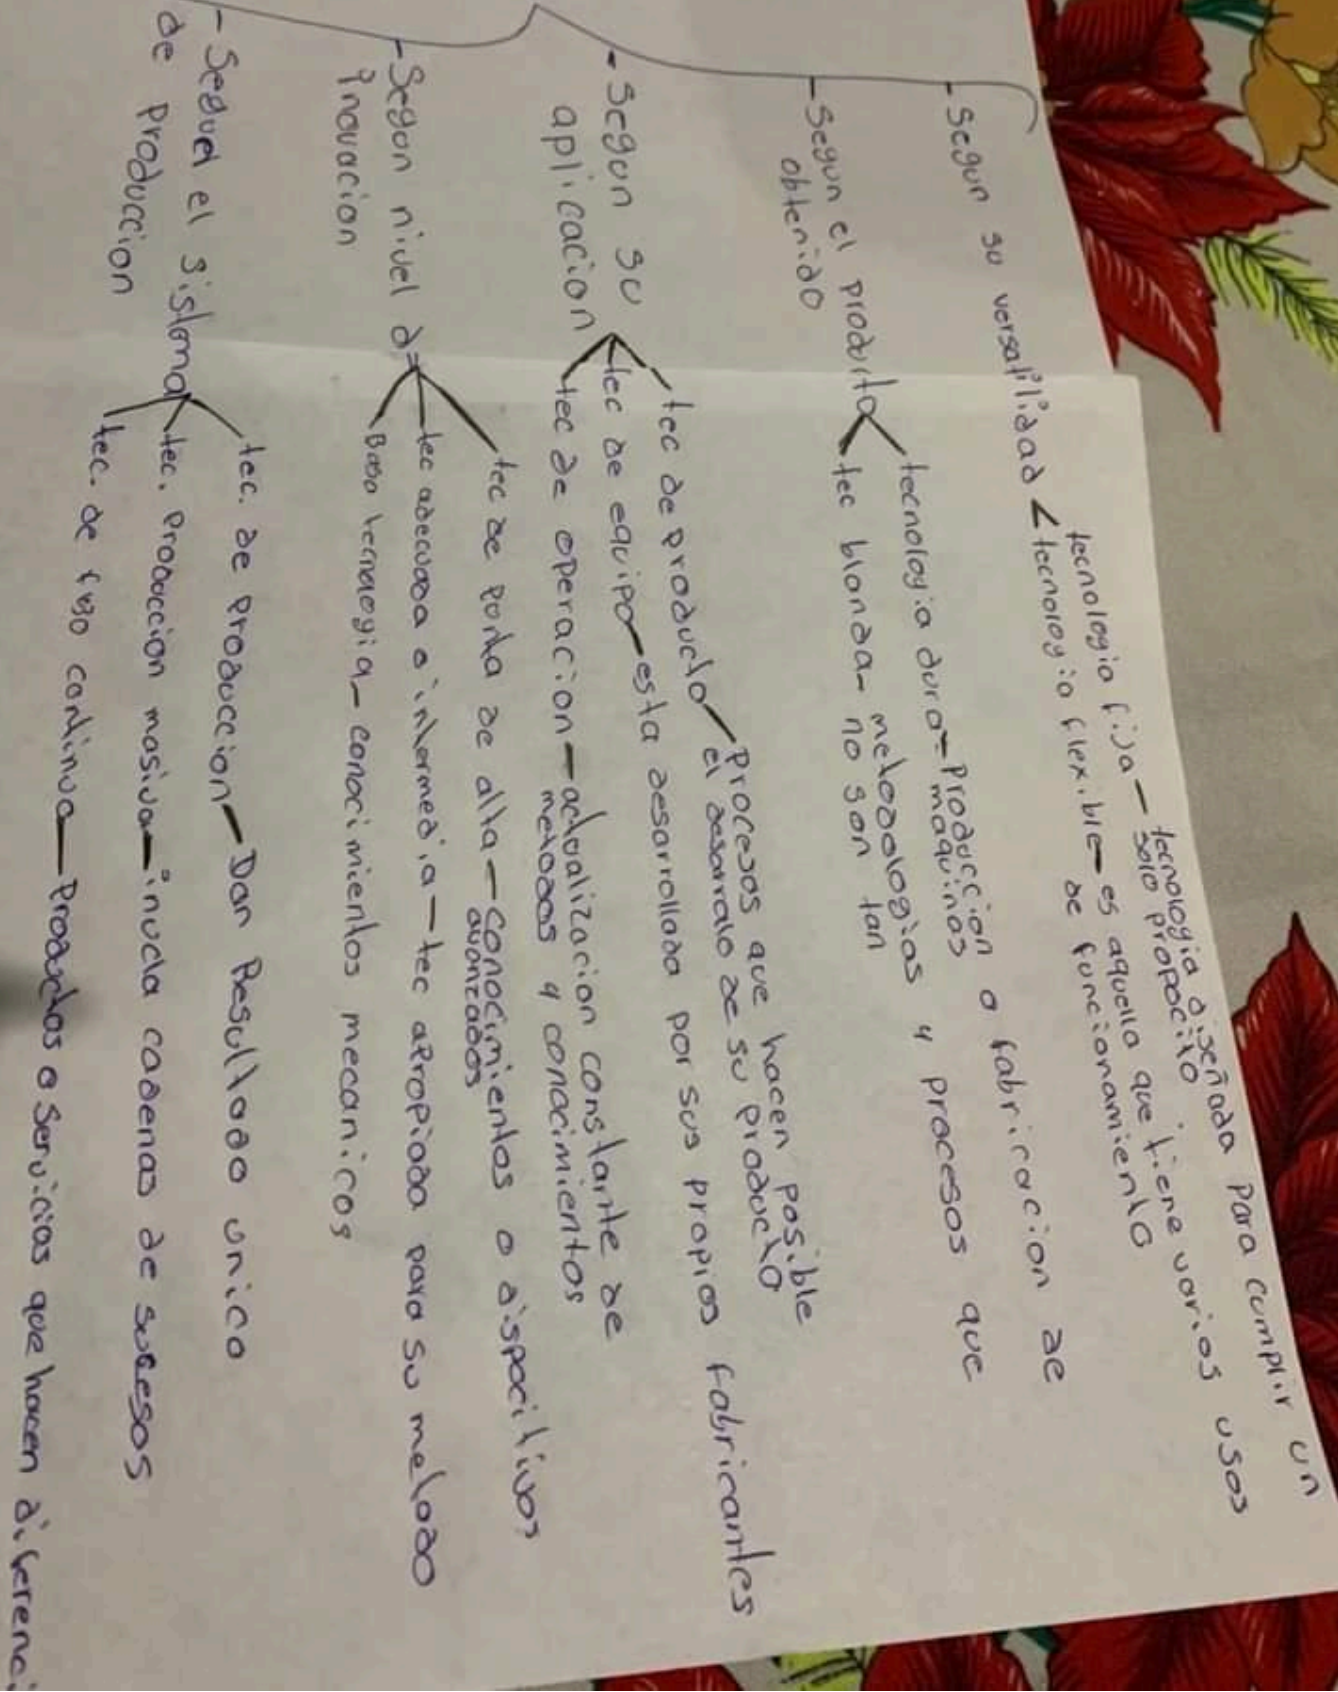 - Segun su versatilidad
tecnologia fija - tecnologia diseñada para cumplir un
solo propocito
tecnologia flexible - es aquella que tiene varios usos
de funcionamiento
- Segun el produrto
obtenido
tecnologia dura - Produccion o fabricacion de
maquinas
tec blanda - metodologias y procesos que
no son tan
- Segun su
aplicacion
tec de producto - Procesos que hacen posible
el desarralo de su producto
tec de equipo - esta desarrollada por sus propios fabricantes
tec de operacion - actualizacion constante de
metodos y conocimientos
- Segun nivel de
inovacion
tec de punta de alta - conocimientos o dispocitivos
avanzados
tec adecuada o intermedia - tec apropiada para su metodo
Baso tecnaogia - conocimientos mecanicos
- Seduel el sistema
de Produccion
tec. de Produccion - Dan Resultado unico
tec. Produccion masiva - inucla cadenas de sucesos
tec. de fujo continua - Productos o Servicios que hacen diferenci